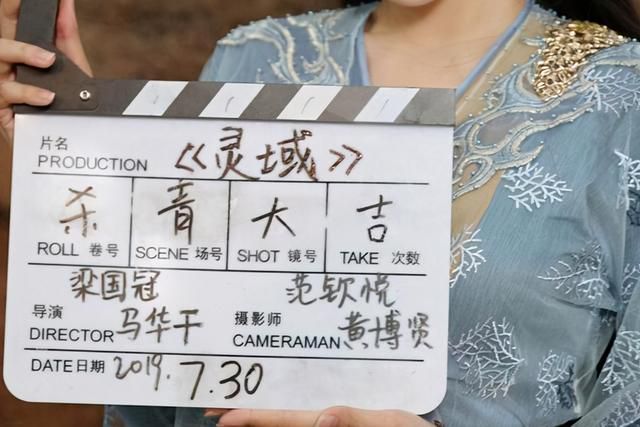 片名 《灵域》
PRODUCTION
杀 青 大 吉
ROLL 卷号 SCENE 场号 SHOT 镜号 TAKE 次数
梁国冠 范钦悦
导演 马华干 摄影师 黄博贤
DIRECTOR CAMERAMAN
DATE日期 2019.7.30